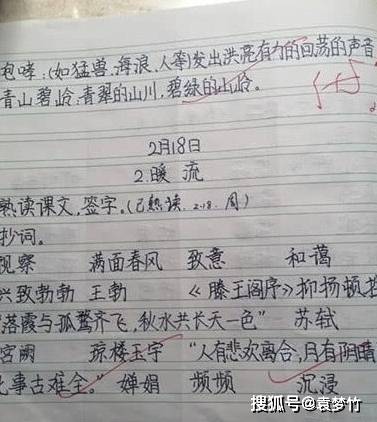 咆哮:(如猛兽、海浪、人等)发出洪亮有力的回荡的声音
青山碧岭:青翠的山川,碧绿的山岭。
2月18日
2.暖流
熟读课文,签字。(已熟读. 2.18. 周)
抄词。
视察 满面春风 致意 和蔼
兴致勃勃 王勃 《滕王阁序》抑扬顿挫
落霞与孤鹜齐飞,秋水共长天一色" 苏轼
宫阙 琼楼玉宇 "人有悲欢离合,月有阴晴
此事古难全。" 婵娟 频频 沉浸
搜狐号@袁梦竹